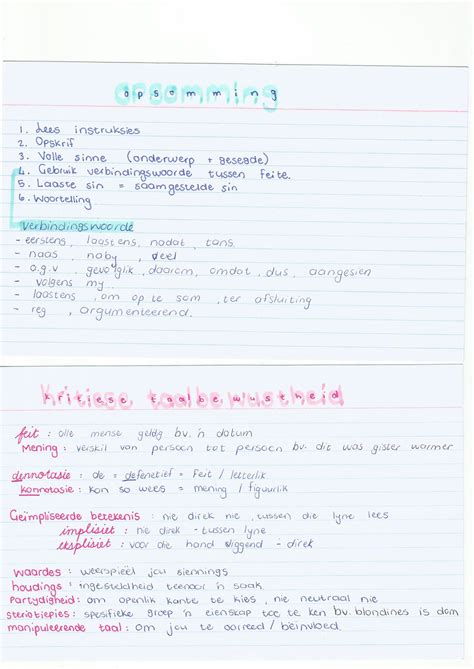 opsomming
1. Lees instruksies
2. Opskrif
3. Volle sinne (onderwerp + gesegde)
4. Gebruik verbindingswoorde tussen feite.
5. Laaste sin = saamgestelde sin
6. Woortelling
verbindingswoorde
- eerstens, laastens, nadat, tans
- naas, naby,
- a.g.v, gevolglik, daarom, omdat, dus, aangesien
- volgens my...
- laastens, om op te som, ter afsluiting
- reg, argumenteerend.
Kritiese taalbewustheid
feit: alle mense geldig bv. 'n datum
Mening: verskil van persoon tot persoon bv. dit was gister warmer
dennotasie: de = defenetief = Feit / letterlik
konnotasie: kon so wees = mening / figuurlik
Geïmpliseerde betekenis: nie direk nie, tussen die lyne lees
implisiet: nie direk - tussen lyne
eksplisiet: voor die hand liggend - direk
waardes: weerspieël jou sienings
houdings: ingesteldheid teenoor 'n saak
Partydigheid: om openlik kante te kies, nie neutraal nie
steriotiepies: spesifieke groep 'n eienskap toe te ken bv. blondines is dom
manipuleerende taal: om jou te oorreed / beïnvloed.